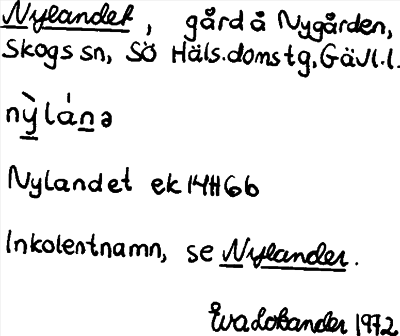 Nylandet, gård å Nygården,
Skogs sn, Sö Häls.domstg, Gävl.l.
nỳlánə
Nylandet ek 14H6b
Inkolentnamn, se Nylander.
1972